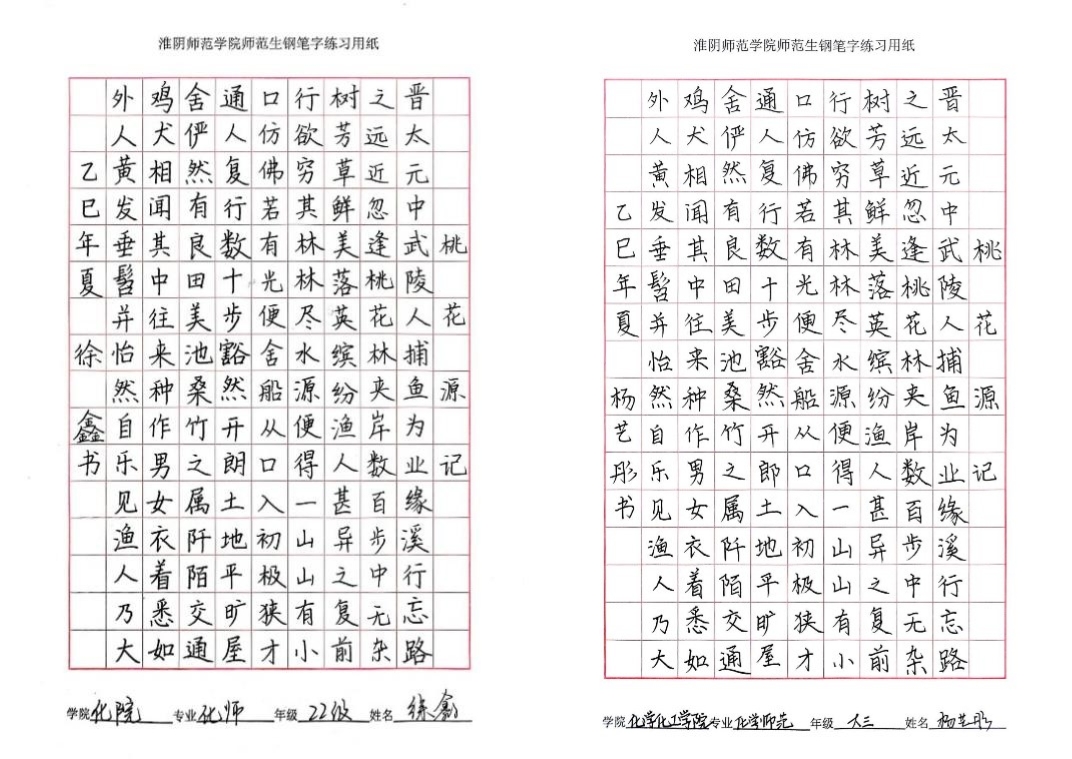 淮阴师范学院师范生钢笔字练习用纸
桃花源记
晋太元中武陵人捕鱼为业缘溪行忘路
之远近忽逢桃花林夹岸数百步中无杂
树芳草鲜美落英缤纷渔人甚异之复前
行欲穷其林林尽水源便得一山山有小
口仿佛若有光便舍船从口入初极狭才
通人复行数十步豁然开朗土地平旷屋
舍俨然有良田美池桑竹之属阡陌交通
鸡犬相闻其中往来种作男女衣着悉如
外人黄发垂髫并怡然自乐见渔人乃大
乙巳年夏徐鑫书
学院 化院 专业 化师 年级 22级 姓名 徐鑫
淮阴师范学院师范生钢笔字练习用纸
桃花源记
晋太元中武陵人捕鱼为业缘溪行忘路
之远近忽逢桃花林夹岸数百步中无杂
树芳草鲜美落英缤纷渔人甚异之复前
行欲穷其林林尽水源便得一山山有小
口仿佛若有光便舍船从口入初极狭才
通人复行数十步豁然开郎土地平旷屋
舍俨然有良田美池桑竹之属阡陌交通
鸡犬相闻其中往来种作男女衣着悉如
外人黄发垂髫并怡然自乐见渔人乃大
乙巳年夏杨艺彤书
学院 化学化工学院 专业 化学师范 年级 大三 姓名 杨艺彤